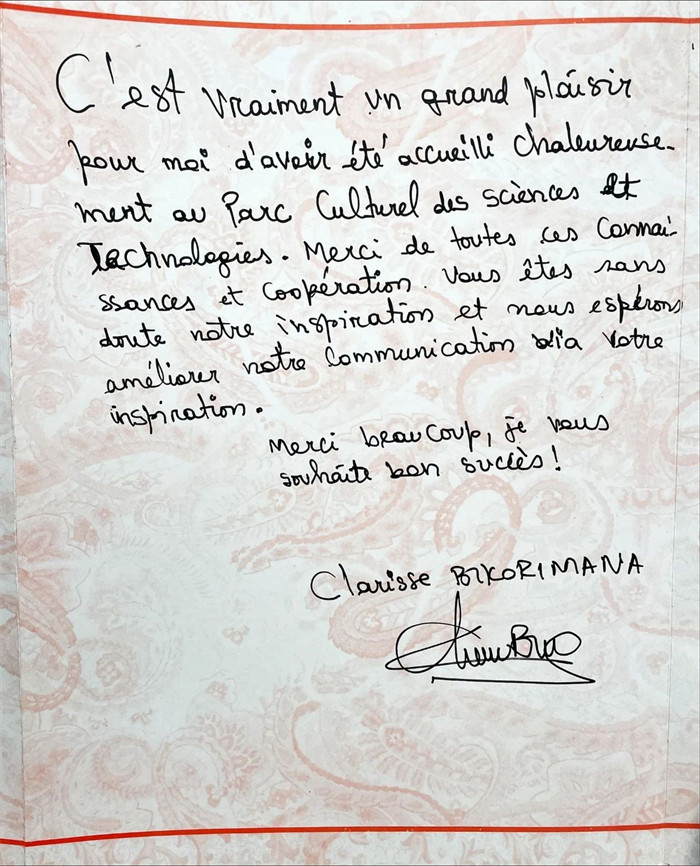 C'est vraiment un grand plaisir
pour moi d'avoir été accueilli chaleureuse-
ment au Parc Culturel des sciences et
Technologies. Merci de toutes ces connai-
ssances et coopération. Vous êtes sans
doute notre inspiration et nous espérons
améliorer notre communication via votre
inspiration.
Merci beaucoup, je vous
souhaite bon succès!
Clarisse BIKORIMANA